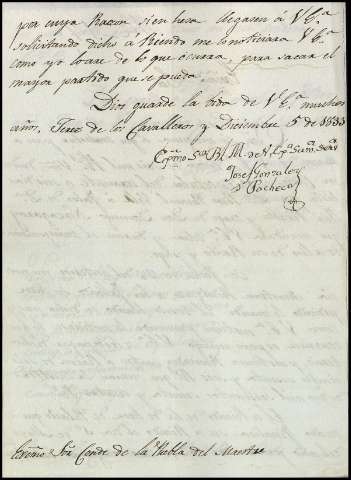 por cuya Razon si en hera llegasen á V.E.ª
solicitando dicho á Riendo me lo noticiara V.E.ª
como yo loare de lo que ocurra, para sacar el
mayor partido que se pueda.
Dios guarde la vida de V.E.ª muchos
años, Xerez de los Cavalleros y Diciembre 5 de 1833
Exmo Sor B. L. M. de V. Exª
Josef Gonzalez
Pacheco
Exmo Sor Conde de la Puebla del Maestre